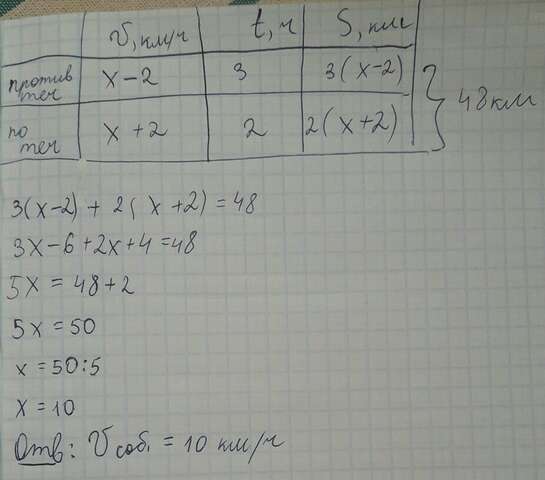 v, км/ч t, ч S, км
против теч x-2 3 3(x-2)
по теч x+2 2 2(x+2)
48км
3(x-2) + 2(x+2) = 48
3x-6+2x+4=48
5x = 48+2
5x = 50
x = 50:5
x = 10
Отв: Vсоб. = 10 км/ч